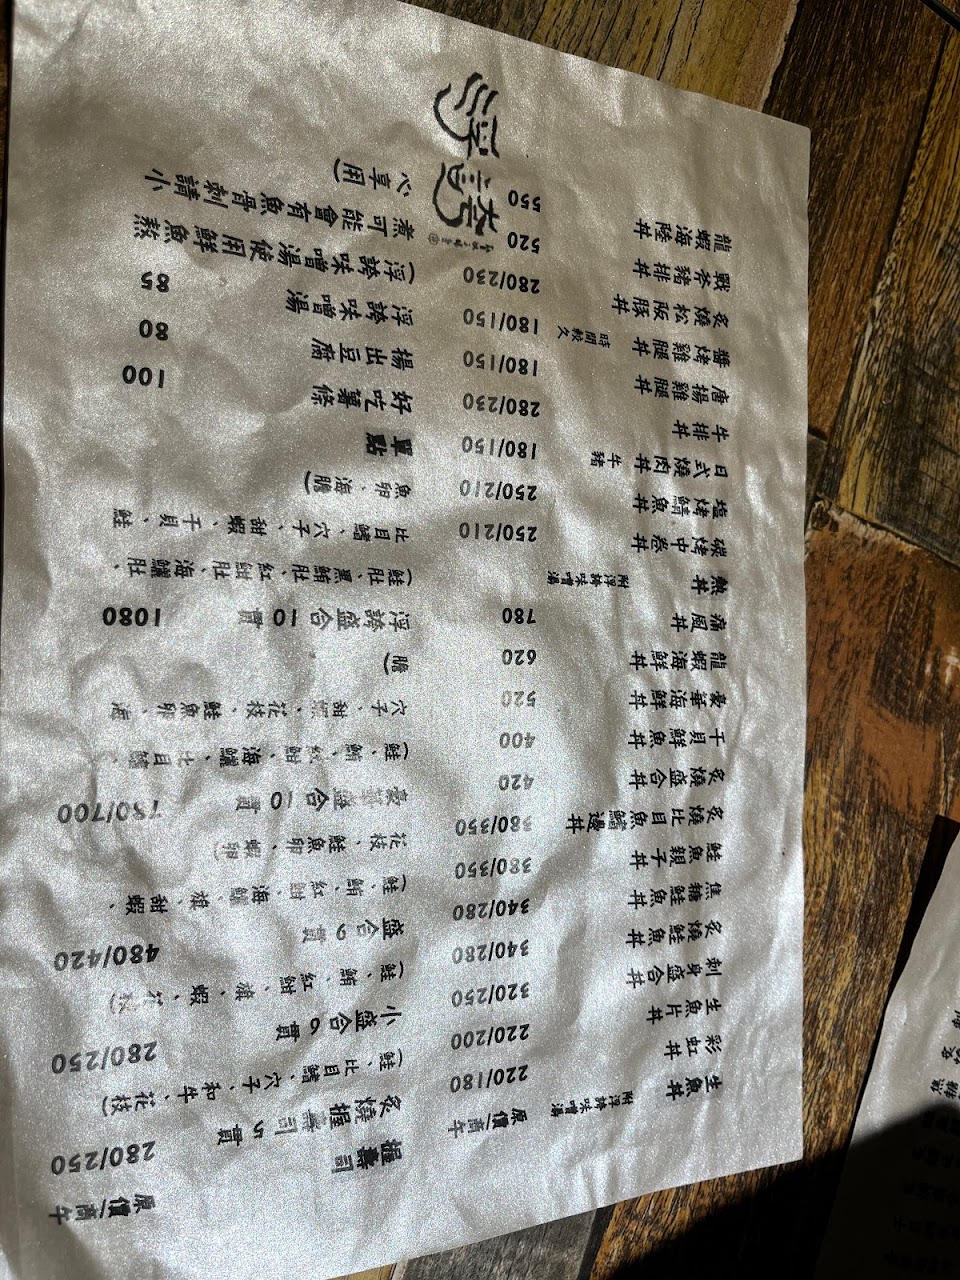 生魚丼 附浮誇味噌湯 原價/商午
彩虹丼 220/180
生魚片丼 220/200
刺身盛合丼 320/250
炙燒鮭魚丼 340/280
焦糖鮭魚丼 340/280
鮭魚親子丼 380/350
炙燒比目魚鰭邊丼 380/350
炙燒盛合丼 420
干貝鮮魚丼 400
豪華海鮮丼 520
龍蝦海鮮丼 620
痛風丼 780
熱丼 附浮誇味噌湯
碳烤中卷丼 250/210
塩烤鯖魚丼 250/210
日式燒肉丼 牛 豬 180/150
牛排丼 280/230
唐揚雞腿丼 180/150
醬烤雞腿丼 時間較久 180/150
炙燒松阪豚丼 280/230
戰斧豬排丼 520
龍蝦海陸丼 550
握壽司 原價/商午
炙燒握壽司5貫 280/250
(鮭、比目鰭、穴子、和牛、花枝)
小盛合6貫 280/250
(鮭、鮪、紅魽、旗、蝦、花枝)
盛合9貫 480/420
(鮭、鮪、紅魽、海鱺、旗、甜蝦、
花枝、鮭魚卵、蝦卵)
豪華盛合10貫 780/700
(鮭、鮪、紅魽、海鱺、比目鰭、
穴子、甜蝦、花枝、鮭魚卵、海
膽)
浮誇盛合10貫 1080
(鮭肚、黑鮪肚、紅魽肚、海鱺肚、
比目鰭、穴子、甜蝦、干貝、鮭
魚卵、海膽)
單點
好吃薯條 100
揚出豆腐 80
浮誇味噌湯 85
(浮誇味噌湯使用鮮魚熬
煮可能會有魚骨刺請小
心享用)
浮誇